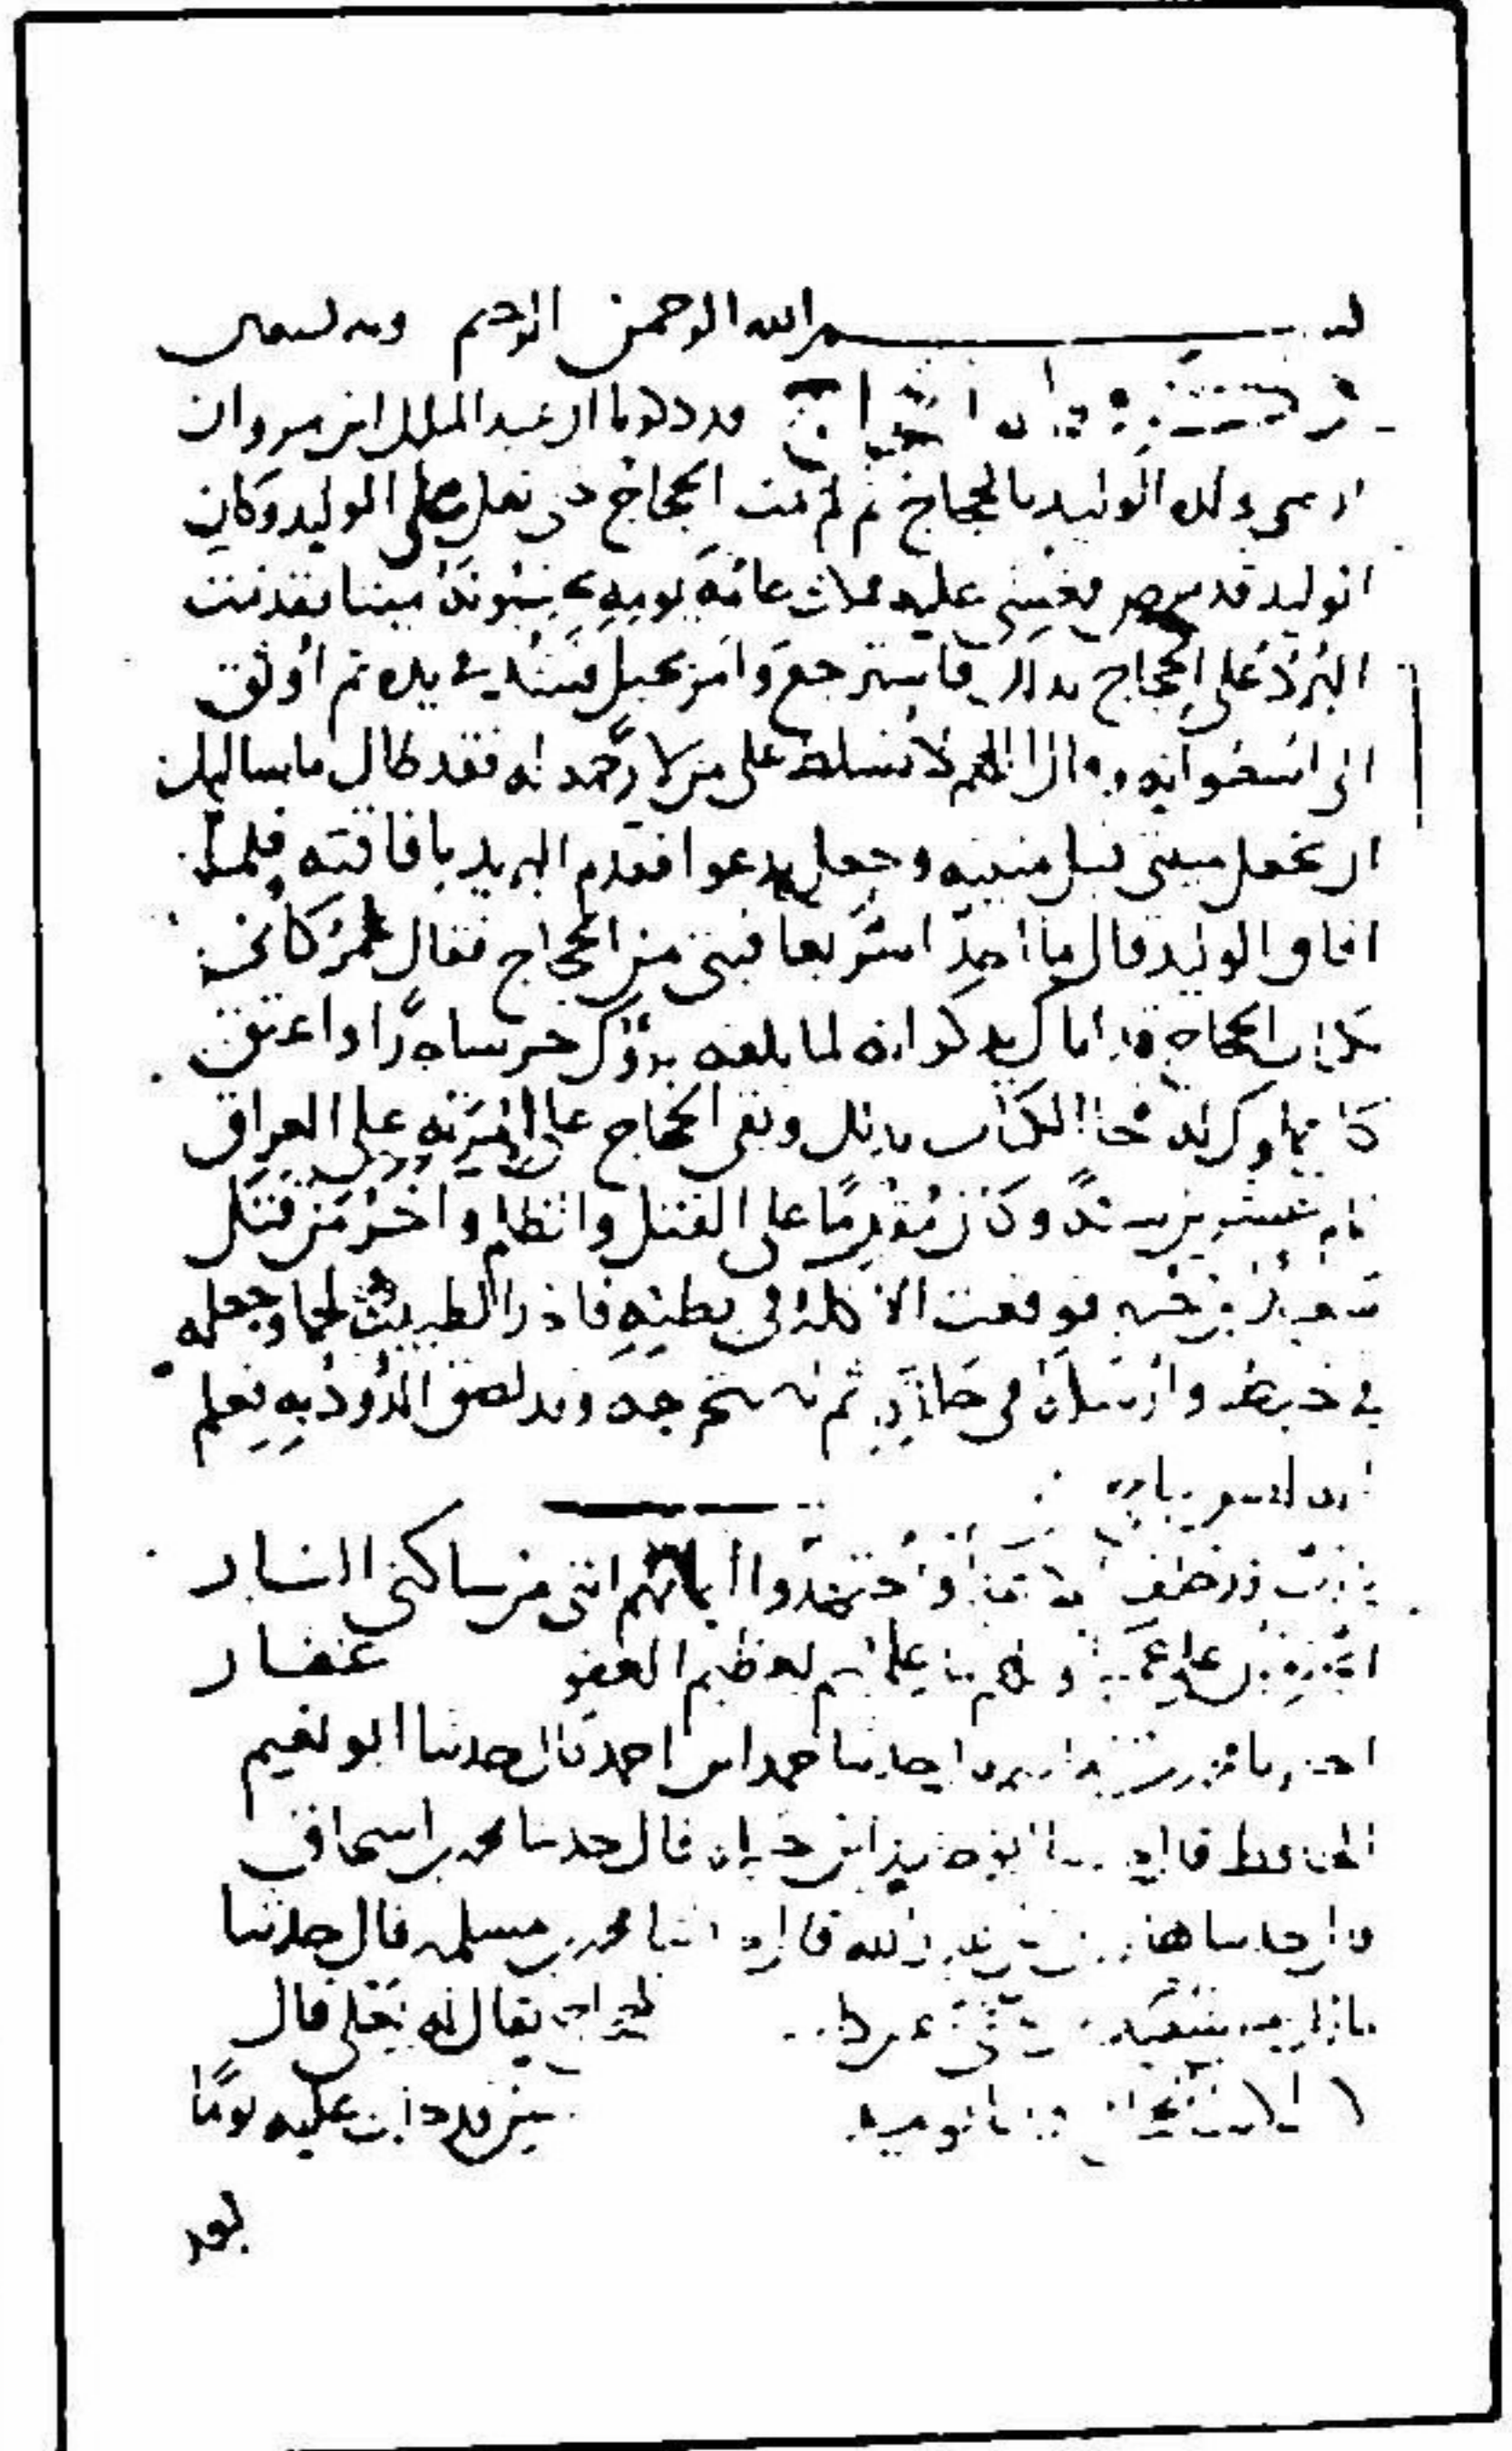 بسم الله الرحمن الرحيم وبه نستعين
وفاة الحجاج قد ذكرنا ان عبد الملك ابن مروان
اوصى ولده الوليد بالحجاج ثم لم يمت الحجاج حتى ثقل على الوليد وكان
الوليد قد مرض فغشي عليه فمكث عامة يومه يحسبونه ميتا فقدمت
البرد على الحجاج بذلك فاسترجع وامر بحبل فشد في يده ثم اوثق
الى اسطوانه وقال اللهم لا تسلط علي من لا رحمة له فقد طال ما سالتك
ان تجعل ميتتي قبل منيته وجعل يدعوا فقدم البريد بافاقته فلما
افاق الوليد قال ما احد اسر بعافيتي من الحجاج فقال عمر كاني
بكتاب الحجاج قد اتاك يذكر انه لما بلغه برؤك خر ساجدا واعتق
كل مملوك له فجا الكتاب بذلك وبقي الحجاج على امرته على العراق
تمام عشرين سنة وكان مقدما على القتل والظلم واخر من قتل
سعيد بن جبير فوقعت الاكلة في بطنه فاخذ الطبيب لحما وجعله
في خيط وارسله في حلقه ثم استخرجه وقد لصق الدود به فعلم
انه ليس بناج
يا رب قد حلف الاعدا واجتهدوا ايمانهم انني من ساكني النار
ايحلفون على عميا ويحهم ما علمهم بعظيم العفو غفار
اخبرنا حدثنا حمد ابن احمد قال حدثنا ابو نعيم
الحافظ قال حدثنا ابو حامد ابن جبله قال حدثنا محمد بن اسحاق
قال حدثنا هارون بن عبد الله قال حدثنا محمد بن مسلمه قال حدثنا
يقال له يعلى قال
عليه يوما
بعد